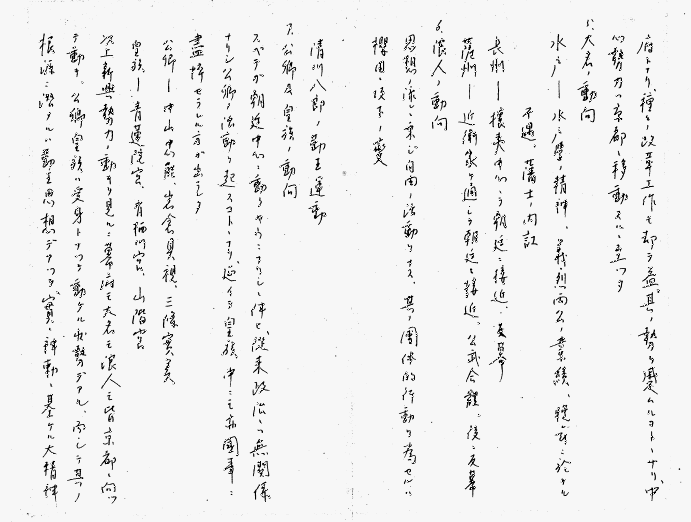 府トナリ、種々ノ改革工作モ却テ益〻其ノ勢ヲ減ムルコトトナリ、中
心勢力ハ京都ニ移動スルニ至ツタ
5.大名ノ動向
水戸― 水戸學ノ精神、義烈両公ノ業績、
不遇、藩士ノ内訌
長州― 攘夷中心ヨリ朝廷ニ接近、反幕
薩州― 近衛家ヲ通シテ朝廷ニ接近。公武合體、後ニ反幕
6.浪人ノ動向
思想ノ流レニ乗ジ自由ノ活動ヲナス、其ノ團体的行動ヲ為セルハ
櫻田、坂下ノ変
清川八郎ノ勤王運動
7.公卿及皇族ノ動向
スベテガ朝廷中心ニ動クヤウニナリシト仲ビ、従来政治ニハ無関係
ナリシ公卿ノ活動ヲ起スコトトナリ、延イテ皇族ノ中ニモ亦國事ニ
盡捧セラレシ方ガ出デタ
公卿― 中山忠能、岩倉具視、三條實美
皇族― 青蓮院宮、有栖川宮、山階宮
次上新興勢力ノ動キヲ見ルニ幕府モ大名モ浪人モ皆京都ニ向ツ
テ動キ。公卿皇族ハ受身トナツテ動ケル状勢デアル、而シテ其ノ
根底ニ潜メルハ勤王思想デアツタガ、實ニ神勅ニ基ケル大精神